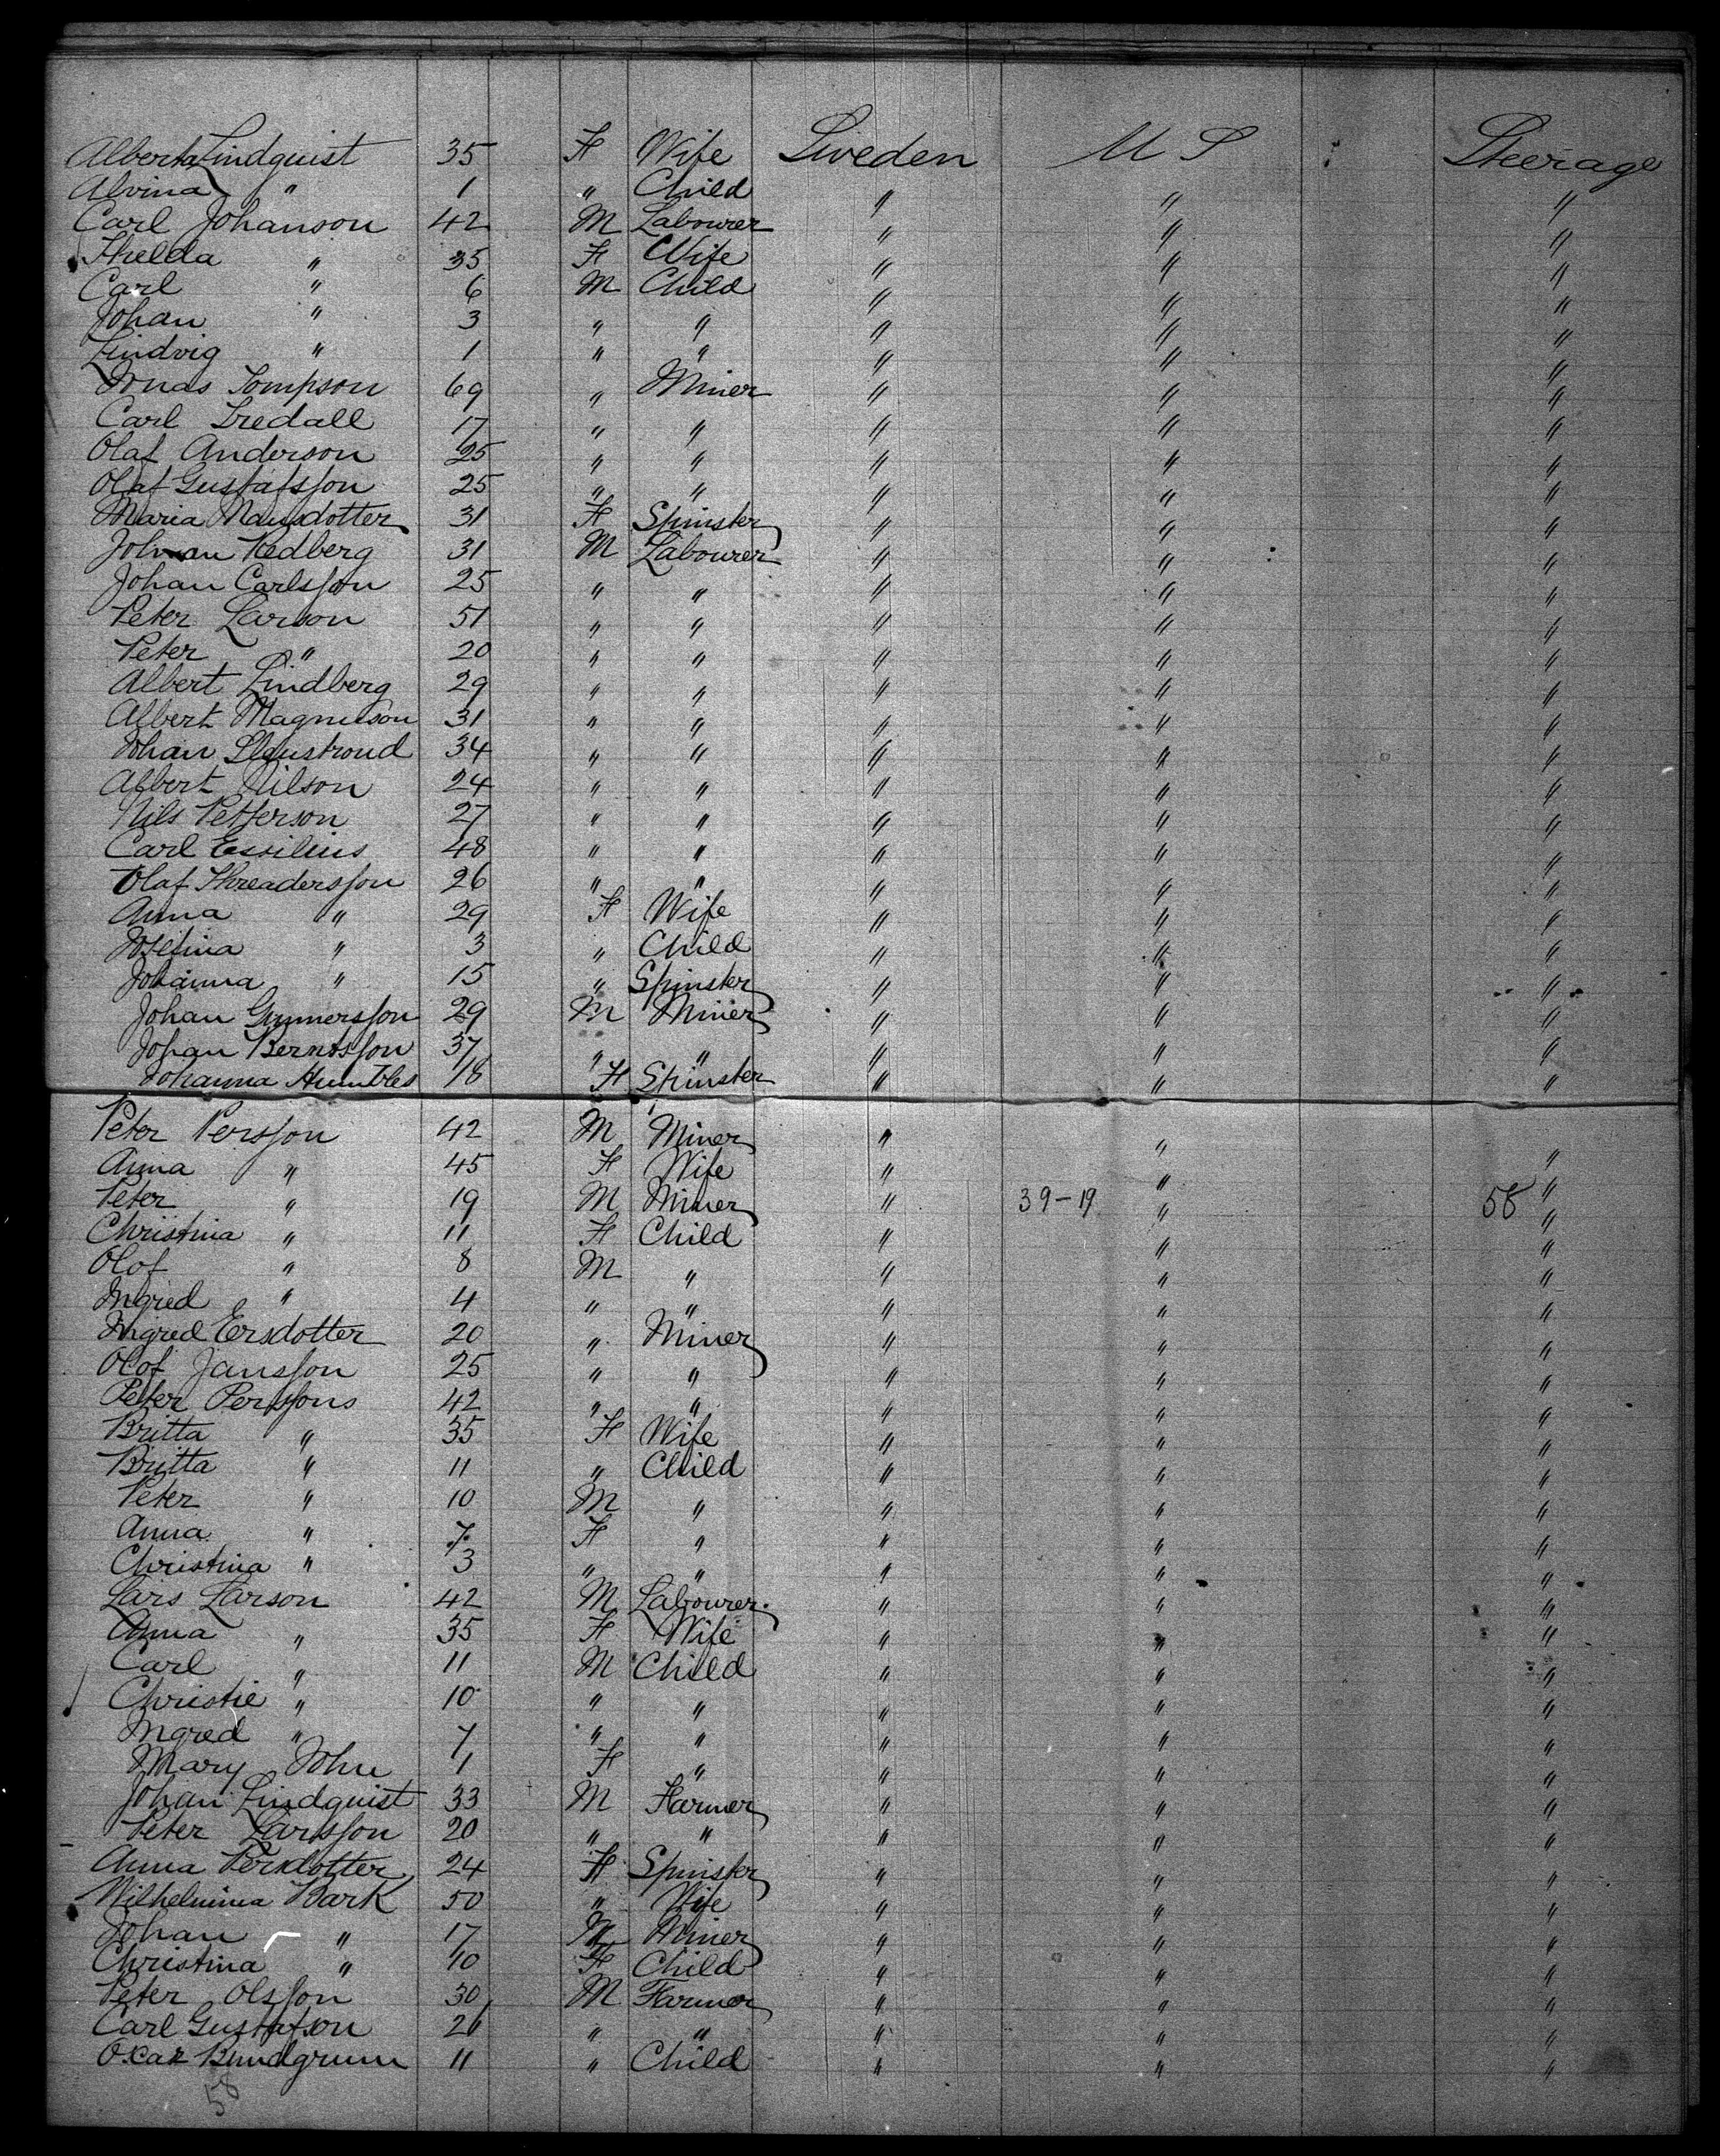 Alberta Lindquist 35 F Wife Sweden U S Steerage
Alvina " 1 " Child " " "
Carl Johanson 42 M Labourer " " "
Thelda " 35 F Wife " " "
Carl " 6 M Child " " "
Johan " 3 " " " " "
Lindvig " 1 " " " " "
Jonas Tompson 69 " Miner " " "
Carl Tredall 17 " " " " "
Olaf Anderson 25 " " " " "
Olaf Gustafsson 25 " " " " "
Maria Mansdotter 31 F Spinster " " "
Johan Hedberg 31 M Labourer " " "
Johan Carlsson 25 " " " " "
Peter Larson 51 " " " " "
Peter " 20 " " " " "
Albert Lindberg 29 " " " " "
Albert Magnuson 31 " " " " "
Johan 34 " " " " "
Albert Nilson 24 " " " " "
Nils Petterson 27 " " " " "
Carl Essilius 48 " " " " "
Olaf Threadersson 26 " " " " "
Anna " 29 F Wife " " "
Josefina " 3 " Child " " "
Johanna " 15 " Spinster " " "
Johan Gunnersson 29 M Miner " " "
Johan Berntsson 37 " " " " "
Johanna Humbles 18 F Spinster " " "
Peter Persson 42 M Miner " " "
Anna " 45 F Wife " " "
Peter " 19 M Miner " 39-19 " 58 "
Christina " 11 F Child " " "
Olof " 8 M " " " "
Ingred " 4 " " " " "
Ingred Ersdotter 20 " Miner " " "
Olof Jansson 25 " " " " "
Peter Perssons 42 " " " " "
Britta " 35 F Wife " " "
Britta " 11 " Child " " "
Peter " 10 M " " " "
Anna " 7 F " " " "
Christina " 3 " " " " "
Lars Larson 42 M Labourer " " "
Anna " 35 F Wife " " "
Carl " 11 M Child " " "
Christie " 10 " " " " "
Ingred " 7 " " " " "
Mary John 1 F " " " "
Johan Lindquist 33 M Farmer " " "
Peter Larsson 20 " " " " "
Anna Persdotter 24 F Spinster " " "
Wilhelmina Bark 50 " Wife " " "
Johan " 17 M Miner " " "
Christina " 10 F Child " " "
Peter Olsson 30 M Farmer " " "
Carl Gustafson 21 " " " " "
Oscar Bundgrum 11 " Child " " "
58